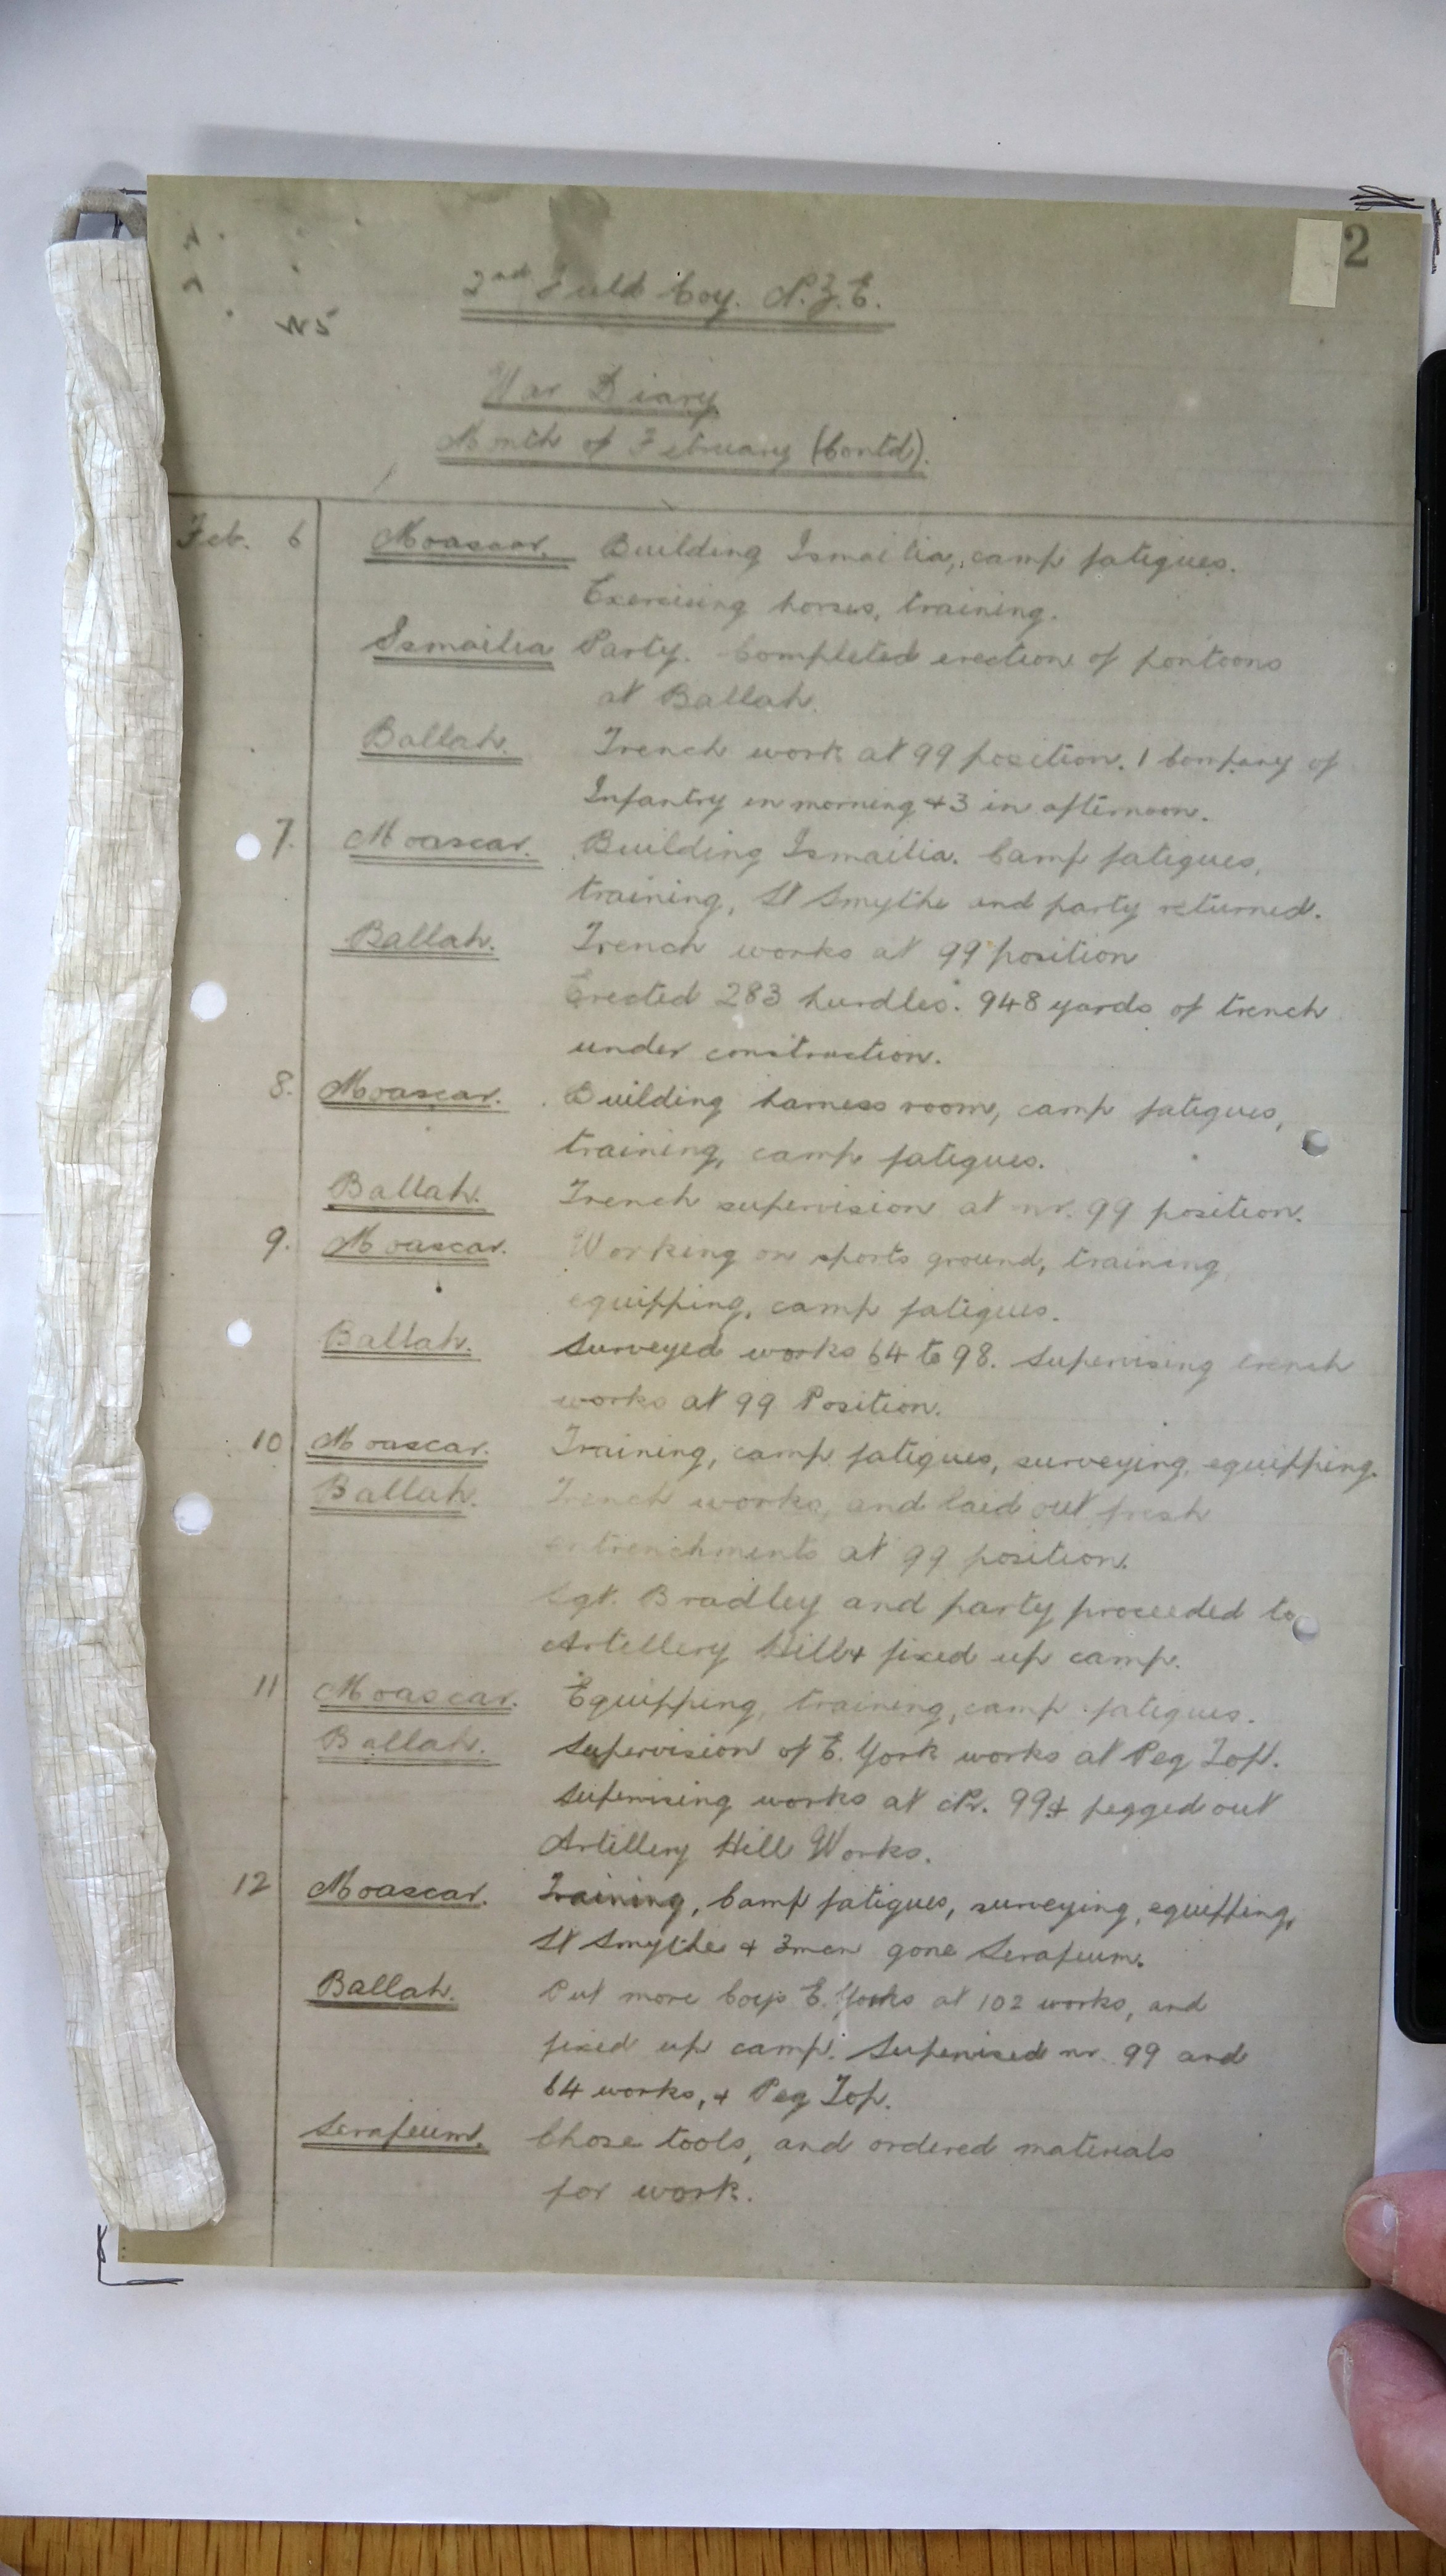 2
2nd Field Coy. N.Z.E.
War Diary
Month of February (Contd).
Feb. 6 Moascar. Building Ismailia, camp fatigues.
Exercising horses, training.
Ismailia Party. Completed erection of pontoons
at Ballah.
Ballah. Trench work at 99 position. 1 Company of
Infantry in morning + 3 in afternoon.
7. Moascar. Building Ismailia. Camp fatigues,
training, Lt Smythe and party returned.
Ballah. Trench works at 99 position
Erected 283 hurdles. 948 yards of trench
under construction.
8. Moascar. Building harness room, camp fatigues,
training, camp fatigues.
Ballah. Trench supervision at nr. 99 position.
9. Moascar. Working on sports ground, training
equipping, camp fatigues.
Ballah. Surveyed works 64 to 98. Supervising trench
works at 99 Position.
10 Moascar. Training, camp fatigues, surveying, equipping.
Ballah. Trench works, and laid out fresh
entrenchments at 99 position.
Sgt. Bradley and party proceeded to
Artillery Hill + fixed up camp.
11 Moascar. Equipping, training, camp fatigues.
Ballah. Supervision of E. York works at Peg Top.
Supervising works at Nr. 99 + pegged out
Artillery Hill Works.
12 Moascar. Training, Camp fatigues, surveying, equipping,
Lt Smythe + 3 men gone Serapeum.
Ballah. Put more Coys E. Yorks at 102 works, and
fixed up camp. Supervised nr. 99 and
64 works, + Peg Top.
Serapeum. Chose tools, and ordered materials
for work.